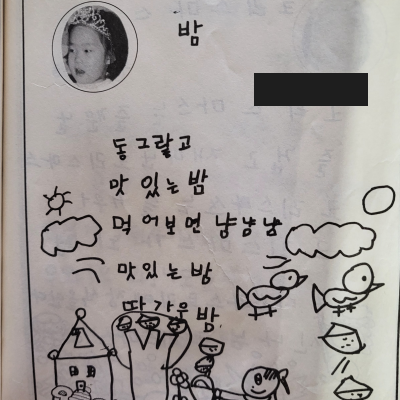 밤
동그랗고
맛있는 밤
먹어보면 냠냠냠
맛있는 밤
따가운 밤